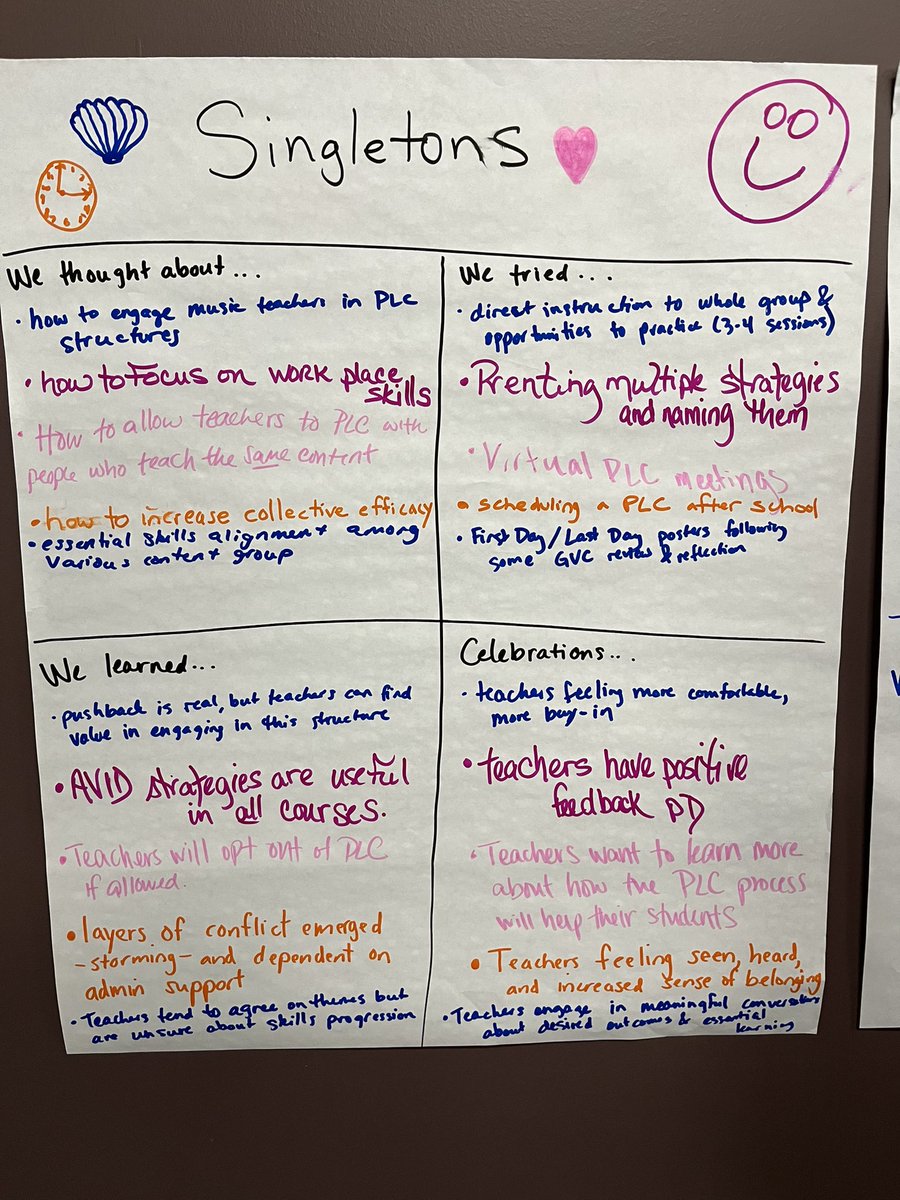 Singletons
We thought about...
• how to engage music teachers in PLC
structures
• how to Focus on work place
skills
• How to allow teachers to PLC with
people who teach the same content
• how to increase collective efficacy
• essential skills alignment among
various content group
We tried...
• direct instruction to whole group &
opportunities to practice (3-4 sessions)
• Prenting multiple strategies
and naming them
• Virtual PLC meetings
• scheduling a PLC after school
• First Day/Last Day posters following
some GVC review & reflection
We learned...
• pushback is real, but teachers can find
value in engaging in this structure
• AVID strategies are useful
in all courses.
• Teachers will opt out of PLC
if allowed.
• layers of conflict emerged
- storming - and dependent on
admin support
• Teachers tend to agree on themes but
are unsure about skills progression
Celebrations...
• teachers feeling more comfortable,
more buy-in
• teachers have positive
feedback PD
• Teachers want to learn more
about how the PLC process
will help their students
• Teachers feeling seen, heard,
and increased sense of belonging
• Teachers engage in meaningful conversations
about desired outcomes & essential
learning